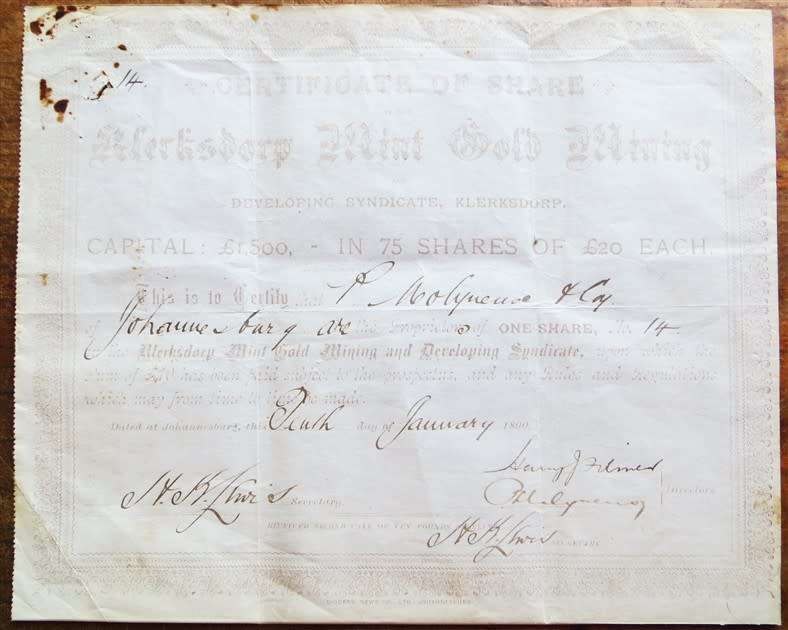 14.
CERTIFICATE OF SHARE
Klerksdorp Mint Gold Mining
DEVELOPING SYNDICATE, KLERKSDORP.
CAPITAL: £1,500, - IN 75 SHARES OF £20 EACH.
This is to Certify that P Molyneux & Coy.
of Johannesburg are the Proprietors of ONE SHARE, No. 14.
of the Klerksdorp Mint Gold Mining and Developing Syndicate, upon which the
sum of £10 has been paid subject to the prospectus, and any Rules and Regulations
which may from time to time be made.
Dated at Johannesburg, this Tenth day of January 1890.
Harry J Filmer
H. K. Lewis Secretary. P Molyneux Directors
RECEIVED SECOND CALL OF TEN POUNDS
H K Lewis SECRETARY.